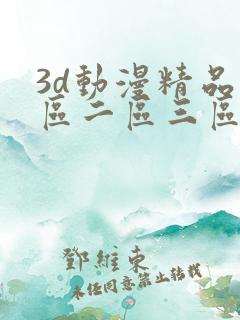 3d動漫精品
區二區三區
鄧維東
未经同意禁止转载